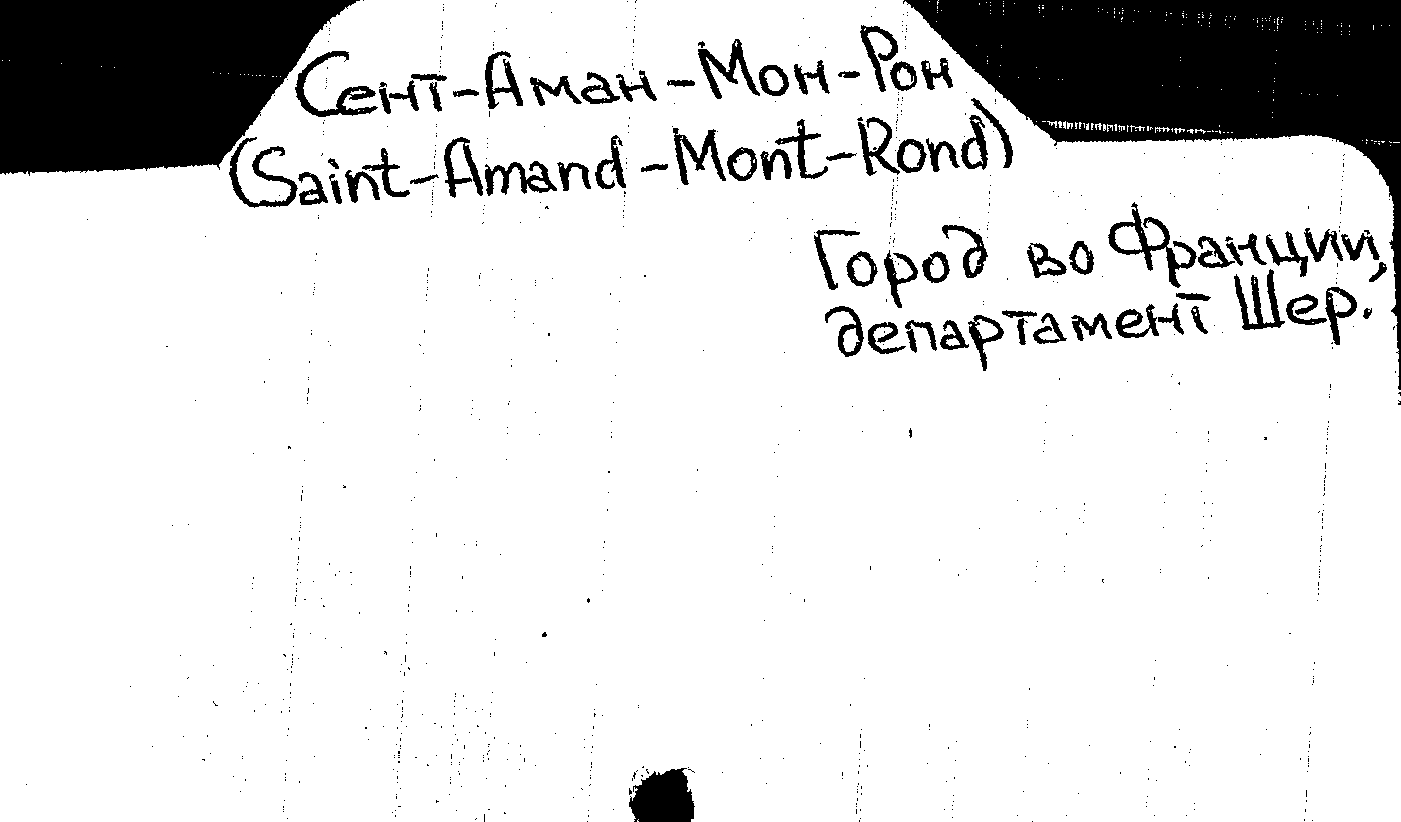 Сент-Аман-Мон-Рон
(Saint-Amand-Mont-Rond)
Город во Франции,
департамент Шер.